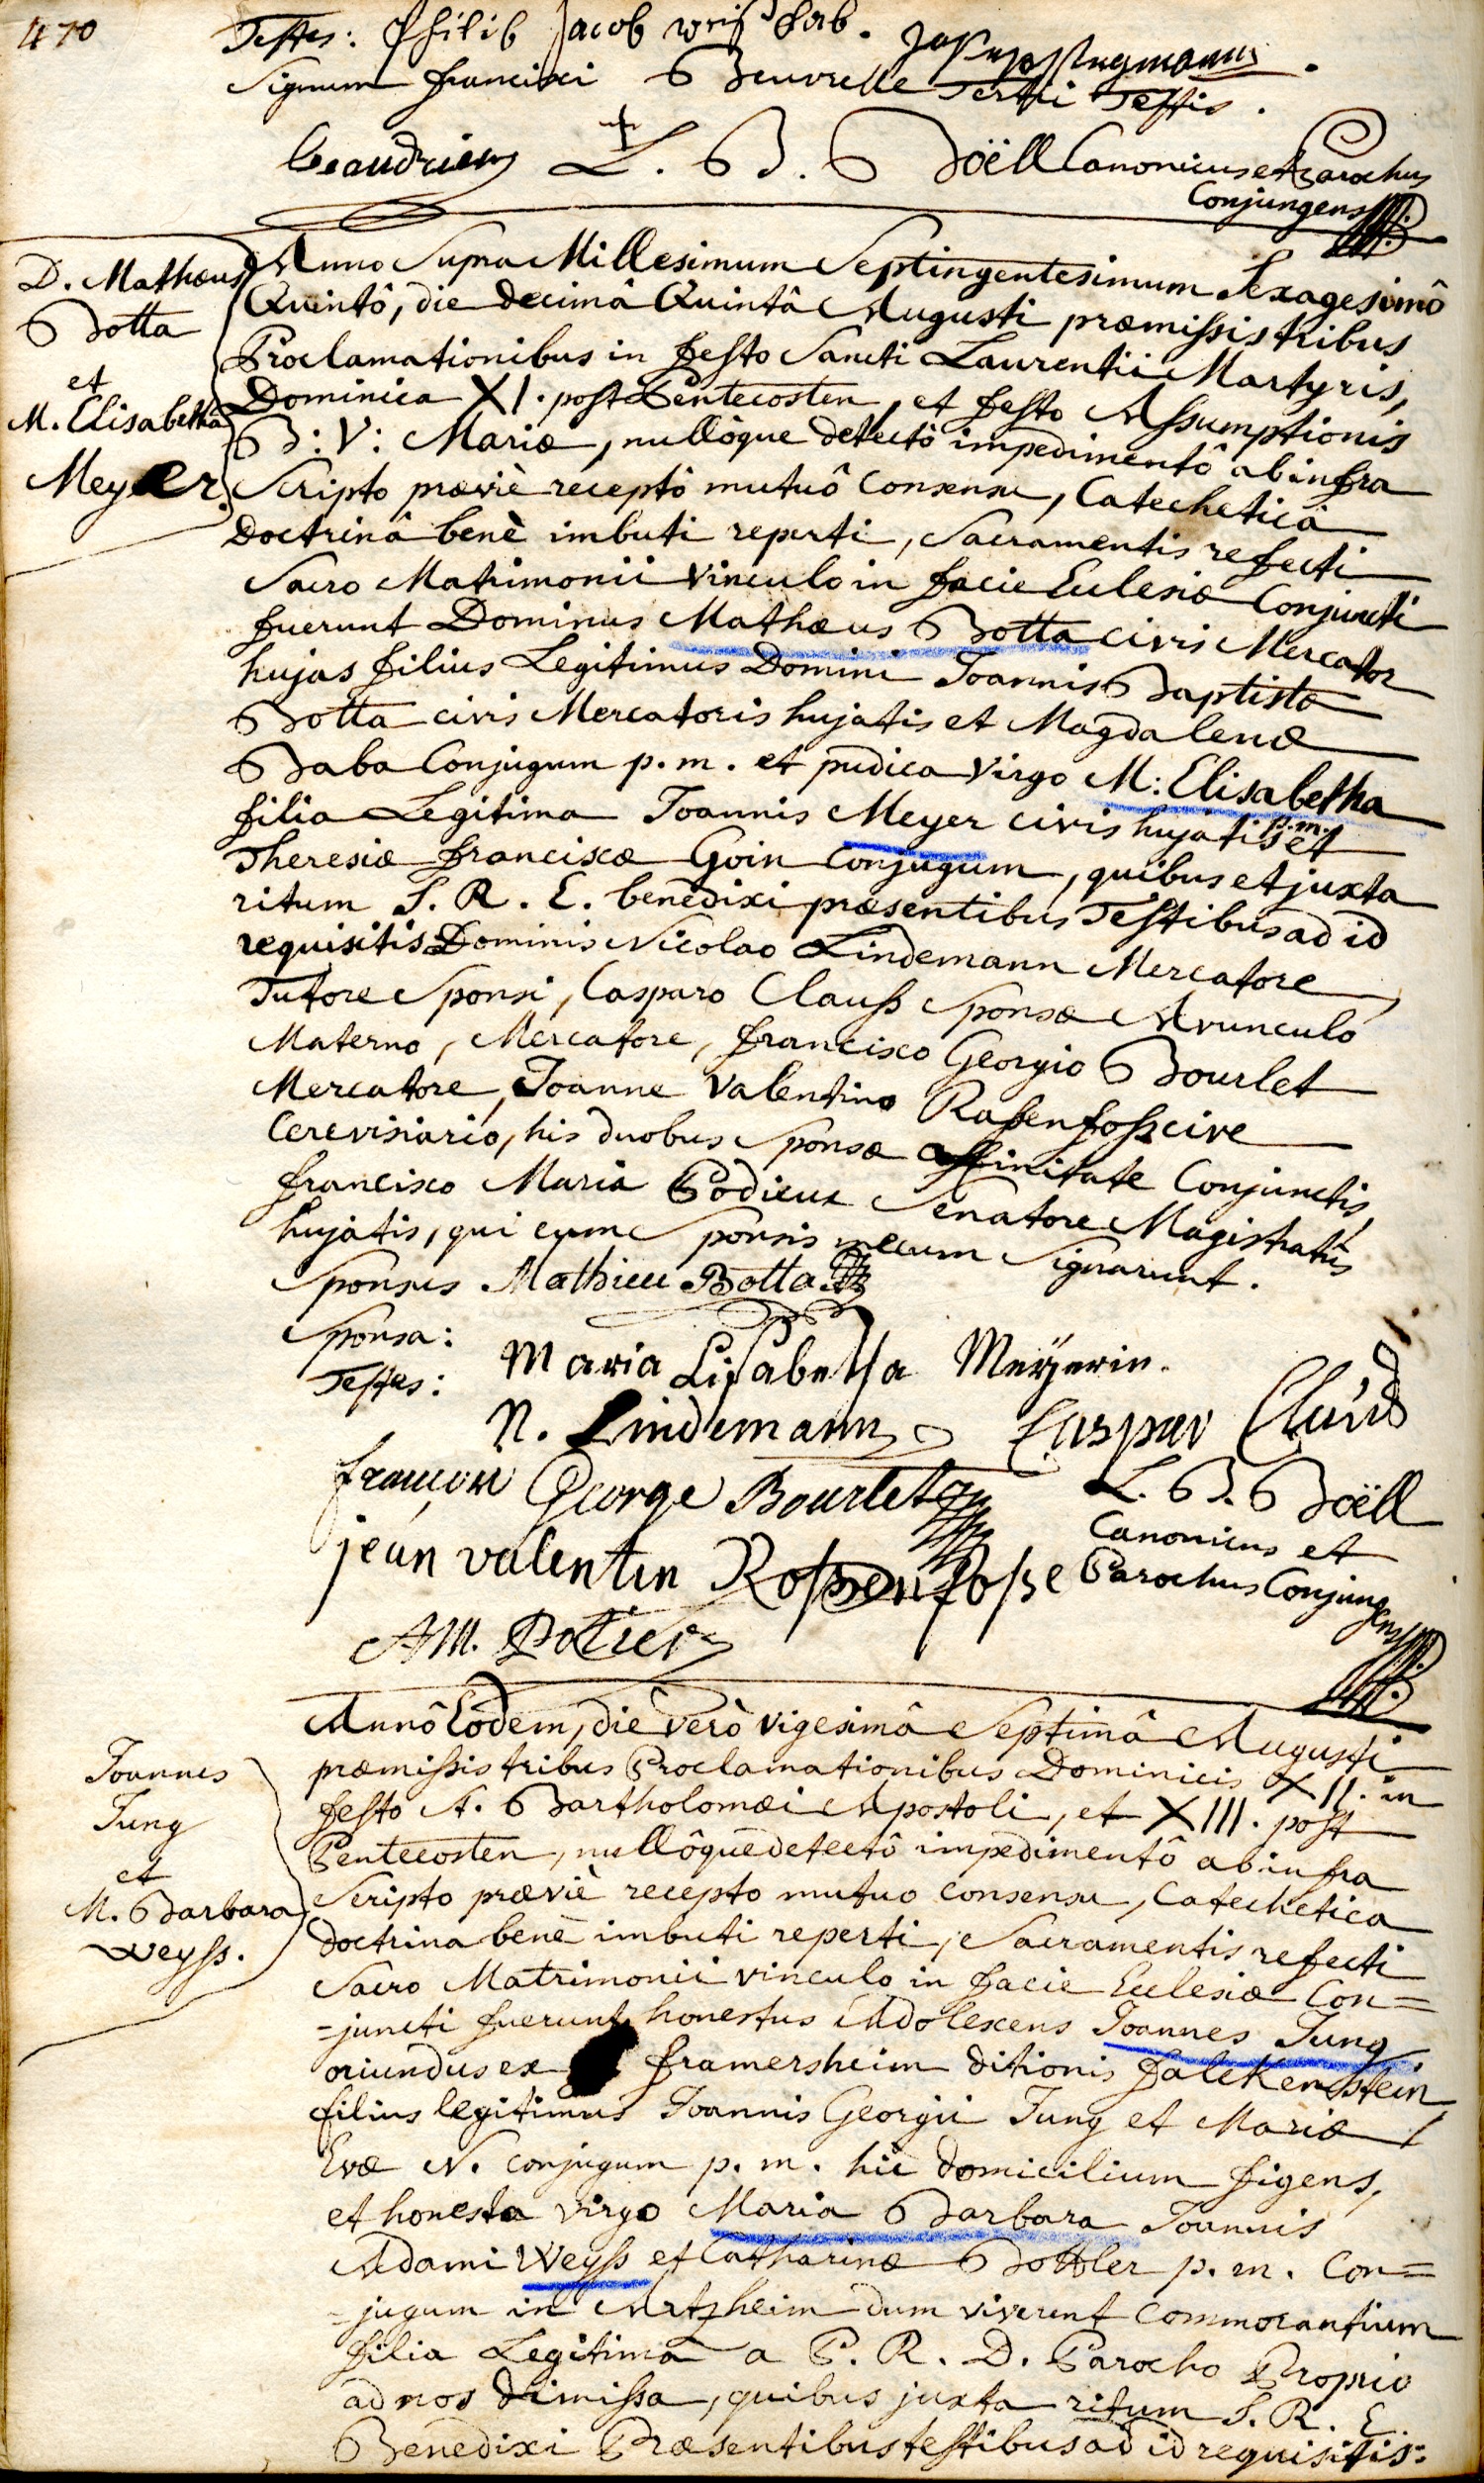 470
Testes: Philib Jacob
Signum francisci Beuvrelle Tertii Testis.
L. B. Boëll Canonicus et Parochus
Conjungens
D. Mathæus
Botta
et
M. Elisabetha
Meyer.
Anno Supra Millesimum Septingentesimum Sexagesimô
Quintô, die decimâ Quintâ Augusti præmissis tribus
Proclamationibus in festo Sancti Laurentii Martyris,
Dominica XI. post Pentecosten, et festo Assumptionis
B: V: Mariæ, nullòque detectô impedimentô ab infra
Scripto præviè receptô mutuô Consensu, Catecheticâ
Doctrinâ benè imbuti reperti, Sacramentis refecti
Sacro Matrimonii Vinculo in facie Eclesiæ Conjuncti
fuerunt Dominus Mathæus Botta civis Mercator
hujas filius Legitimus Domini Joannis Baptistæ
Botta civis Mercatoris hujatis et Magdalenæ
Baba Conjugum p. m. et pudica Virgo M: Elisabetha
filia Legitima Joannis Meyer civis hujatis p.m. et
Theresiæ franciscæ Goin Conjugum, quibus et juxta
ritum S. R. E. benedixi præsentibus Testibus ad id
requisitis Dominis Nicolao Lindemann Mercatore,
Tutore Sponsi, Casparo Clauss Sponsæ Avunculo
Materno, Mercatore, francisco Georgio Bourlet
Mercatore, Joanne Valentino Rassenfosse cive
Cerevisiario, his duobus Sponsæ affinitate Conjunctis,
francisco Maria Senatore Magistratûs
hujatis, qui cum Sponsis mecum Signarunt.
Sponsus Mathieu Botta
Sponsa: Maria Lisabetha Meÿerin.
Testes:
N. Lindemann Caspar
françois George Bourlet L. B. Boëll
Canonicus et
jean valentin Rossenfosse Parochus Conjungens
Potier
Joannes
Jung
et
M. Barbara
Weyss.
Annô Eodem, die verò vigesimâ Septimâ Augusti
præmissis tribus Proclamationibus Dominicis XII. in
festo S. Bartholomæi Apostoli, et XIII. post
Pentecosten, nullôque detectô impedimentô ab infra
Scripto præviè recepto mutuo Consensu, Catechetica
doctrina benè imbuti reperti, Sacramentis refecti
Sacro Matrimonii vinculo in facie Eclesiæ Con=
=juncti fuerunt honestus Adolescens Joannes Jung
oriundus ex framersheim ditionis falckenstein,
filius legitimus Joannis Georgii Jung et Mariæ
Evæ N. conjugum p. m. hic domicilium figens,
et honesta virgo Maria Barbara Joannis
Adami Weyss et Catharinæ p. m. Con=
=jugum in Artzheim dum viverent Commorantium
filia Legitima a P. R. D. Parocho Proprio
ad nos dimissa, quibus juxta ritum S. R. E.
Benedixi Præsentibus testibus ad id requisitis: